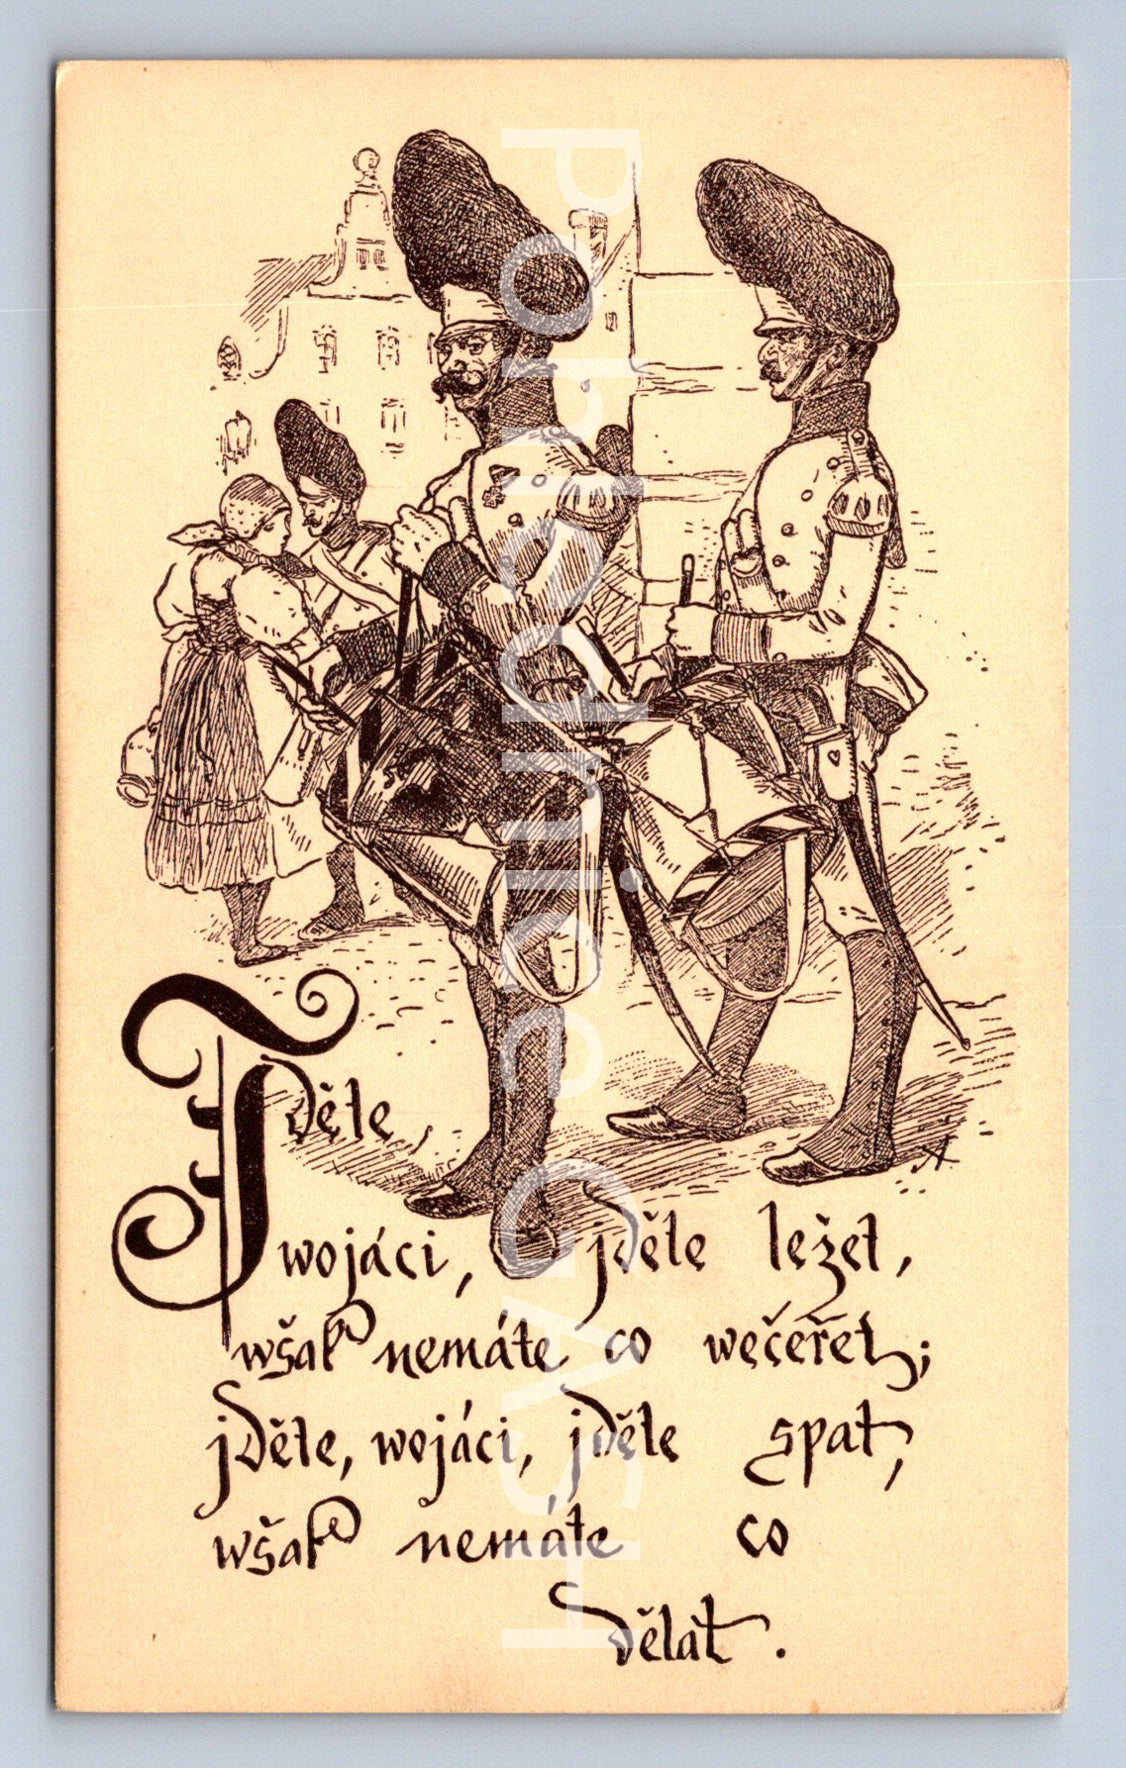 Jděte,
wojáci, jděte ležet,
wšak nemáte co wečeřet;
jděte, wojáci, jděte spat,
wšak nemáte co
dělat.
A
Pohlednice CASH